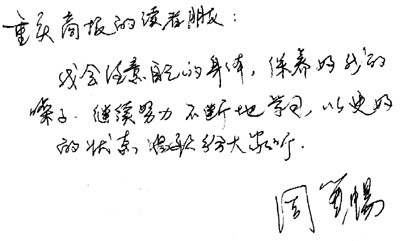 重庆商报的读者朋友：
我会注意自己的身体，保养好我的
嗓子．继续努力不断地学习，以更好
的状态，唱歌给大家听．
周笔畅